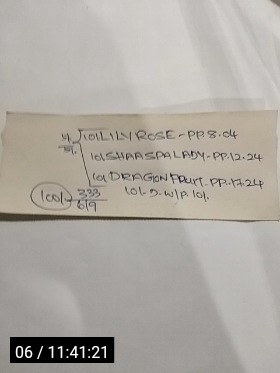 10/LILY ROSE-PP.8.04
10/SHAASPA LADY-PP.12.24
10/DRAGON FRUIT-PP.17.24
100/- 3.33
619
06 / 11:41:21